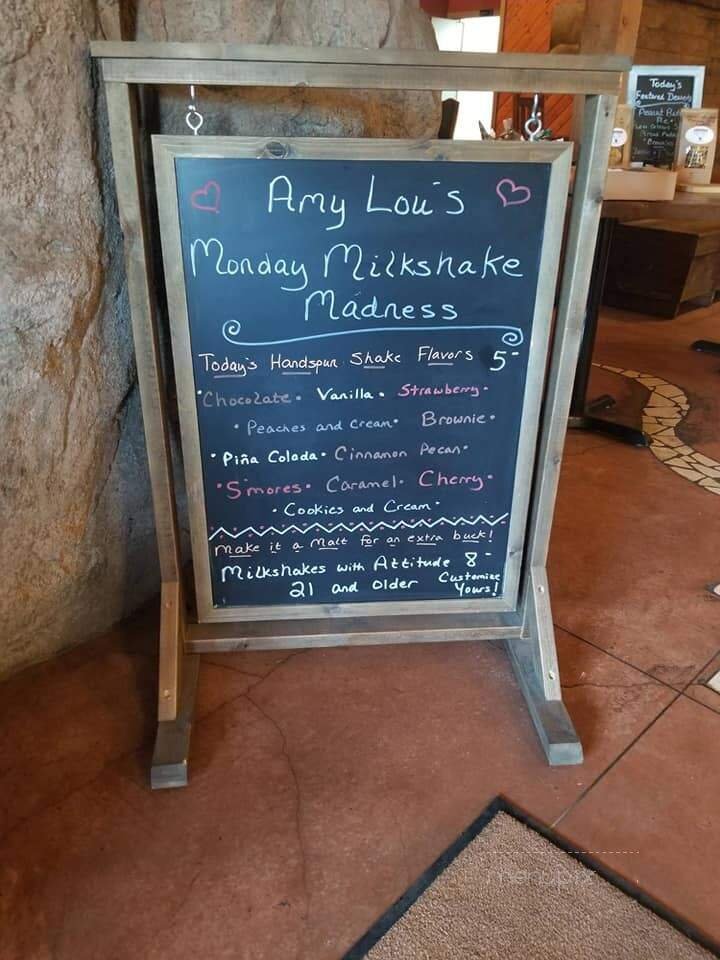 Amy Lou's
Monday Milkshake
Madness
Today's Handspun Shake Flavors 5-
•Chocolate• Vanilla• Strawberry•
•Peaches and Cream• Brownie•
•Piña Colada• Cinnamon Pecan•
•S'mores• Caramel• Cherry•
•Cookies and Cream•
make it a malt for an extra buck!
Milkshakes with Attitude 8-
21 and older Customize
Yours!
Today's
Featured Desserts
Peanut
menupix